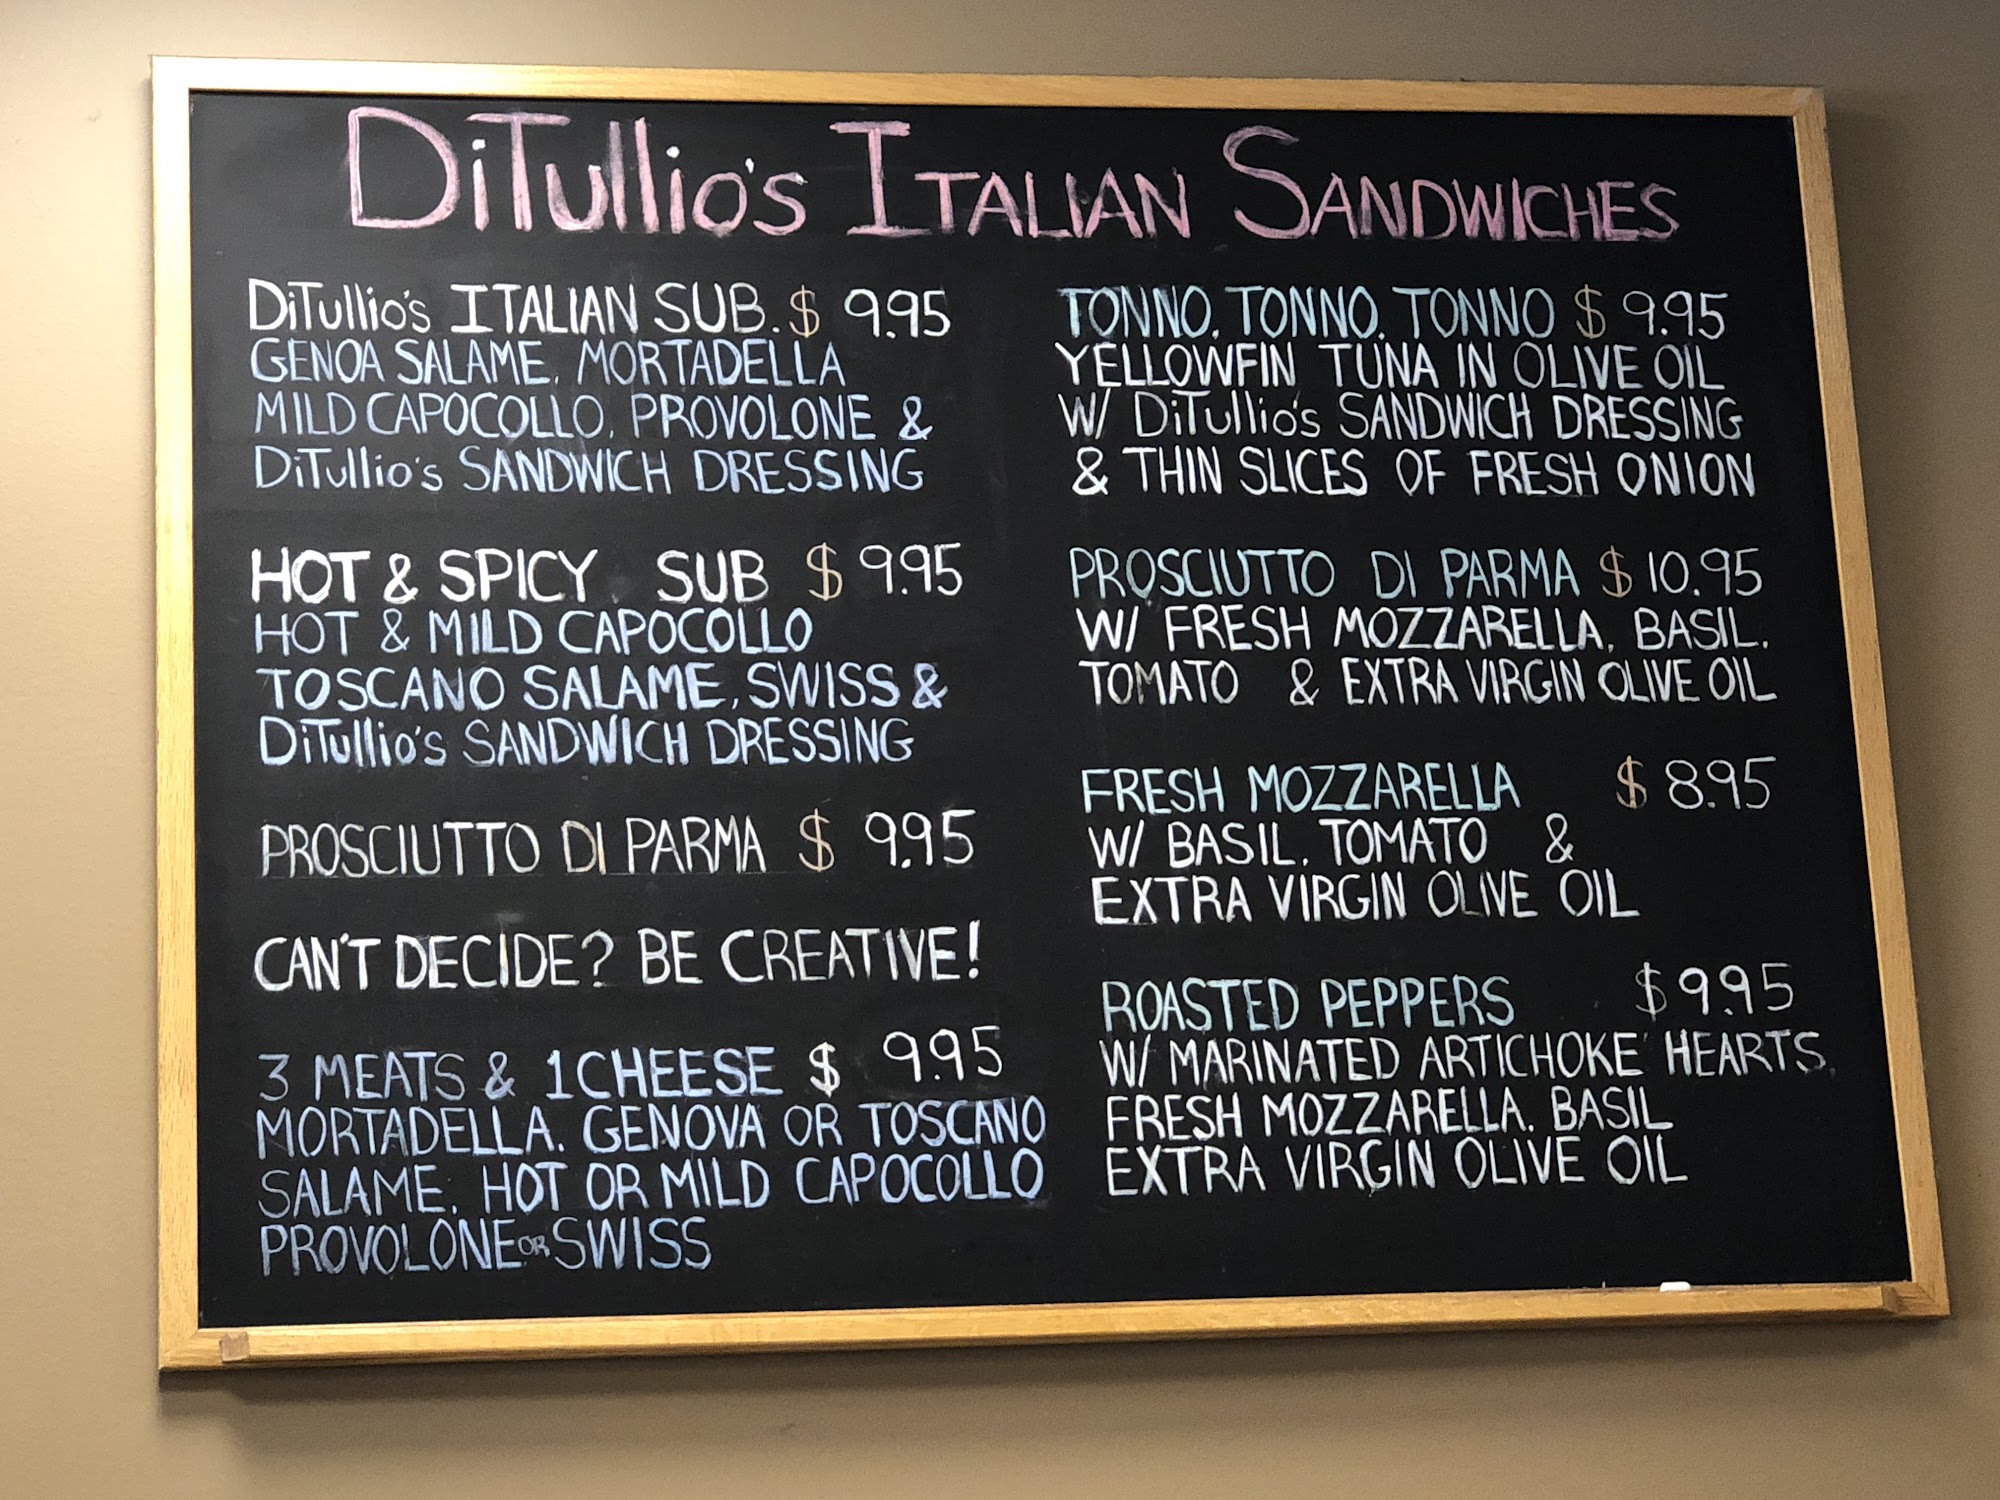 DiTullio's ITALIAN SANDWICHES
DiTullio's ITALIAN SUB. $ 9.95
GENOA SALAME, MORTADELLA
MILD CAPOCOLLO, PROVOLONE &
DiTullio's SANDWICH DRESSING
HOT & SPICY SUB $ 9.95
HOT & MILD CAPOCOLLO
TOSCANO SALAME, SWISS &
DiTullio's SANDWICH DRESSING
PROSCIUTTO DI PARMA $ 9.95
CAN'T DECIDE? BE CREATIVE!
3 MEATS & 1 CHEESE $ 9.95
MORTADELLA, GENOVA OR TOSCANO
SALAME, HOT OR MILD CAPOCOLLO
PROVOLONE OR SWISS
TONNO, TONNO, TONNO $ 9.95
YELLOWFIN TUNA IN OLIVE OIL
W/ DiTullio's SANDWICH DRESSING
& THIN SLICES OF FRESH ONION
PROSCIUTTO DI PARMA $ 10.95
W/ FRESH MOZZARELLA, BASIL,
TOMATO & EXTRA VIRGIN OLIVE OIL
FRESH MOZZARELLA $ 8.95
W/ BASIL, TOMATO &
EXTRA VIRGIN OLIVE OIL
ROASTED PEPPERS $ 9.95
W/ MARINATED ARTICHOKE HEARTS,
FRESH MOZZARELLA, BASIL
EXTRA VIRGIN OLIVE OIL